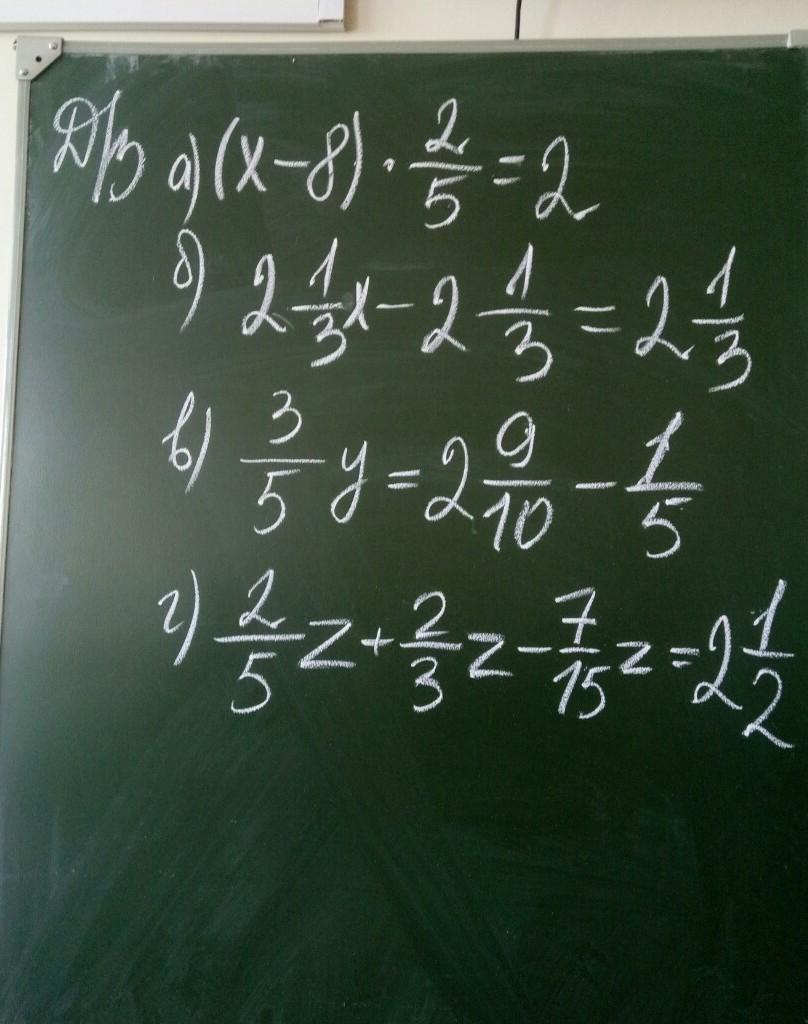 Д/з а) (x-8) · 2/5 = 2
б) 2 1/3 x - 2 1/3 = 2 1/3
в) 3/5 y = 2 9/10 - 1/5
г) 2/5 z + 2/3 z - 7/15 z = 2 1/2